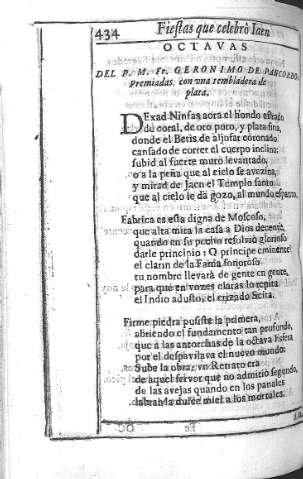 434 Fiestas que celebrò Iaen
OCTAVAS
DEL P. M. Fr. GERONIMO DE PANCORBO,
Premiadas, con vna tembladera de
plata.
DExad Ninfas aora el hondo estrado
de coral, de oro puro, y plata fina,
donde el Betis de aljofar coronado
cansado de correr el cuerpo inclina:
subid al fuerte muro levantado,
o a la peña que al cielo se avezina,
y mirad de Jaen el Templo santo
que al cielo le dà gozo, al mundo espanto.
Fabrica es esta digna de Moscoso,
que alta mira la casa a Dios decente,
quando en su pecho resolviò glorioso
darle principio; O principe eminente!
el clarin de la Fama sonoroso
tu nombre llevarà de gente en gente,
para que en vozes claras lo repita
el Indio adusto, el erizado Scita.
Firme piedra pusiste la primera,
abriendo el fundamento tan profundo,
que a las antorchas de la octava Esfera
por el despavilava el nuevo mundo:
Sube la obra; vn Retrato era
de aquel fervor que no admitiò segundo,
de las avejas quando en los panales
labrab la dulce miel a los mortales.